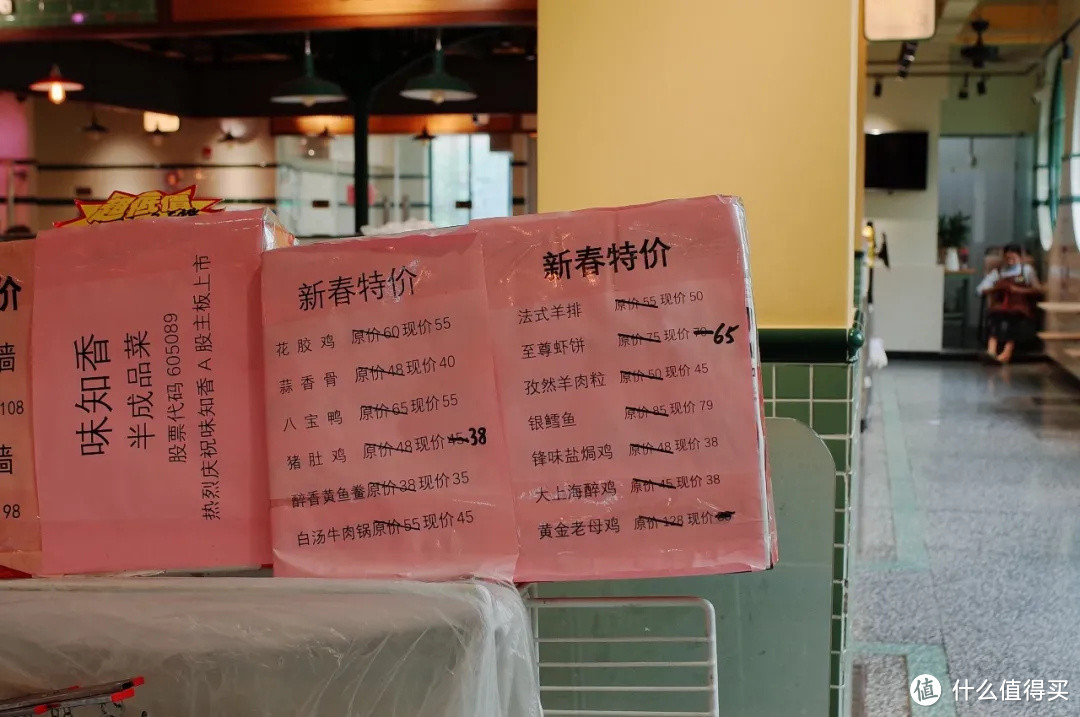 超低价
价
墙
108
墙
98
味知香
半成品菜
股票代码 605089
热烈庆祝味知香 A 股主板上市
新春特价
花胶鸡 原价60现价55
蒜香骨 原价48现价40
八宝鸭 原价65现价55
猪肚鸡 原价48现价45 38
醉香黄鱼鲞原价38现价35
白汤牛肉锅原价55现价45
新春特价
法式羊排 原价55 现价50
至尊虾饼 原价75 现价70 65
孜然羊肉粒 原价50 现价45
银鳕鱼 原价85 现价79
锋味盐焗鸡 原价48 现价38
大上海醉鸡 原价45 现价38
黄金老母鸡 原价128 现价
值 什么值得买